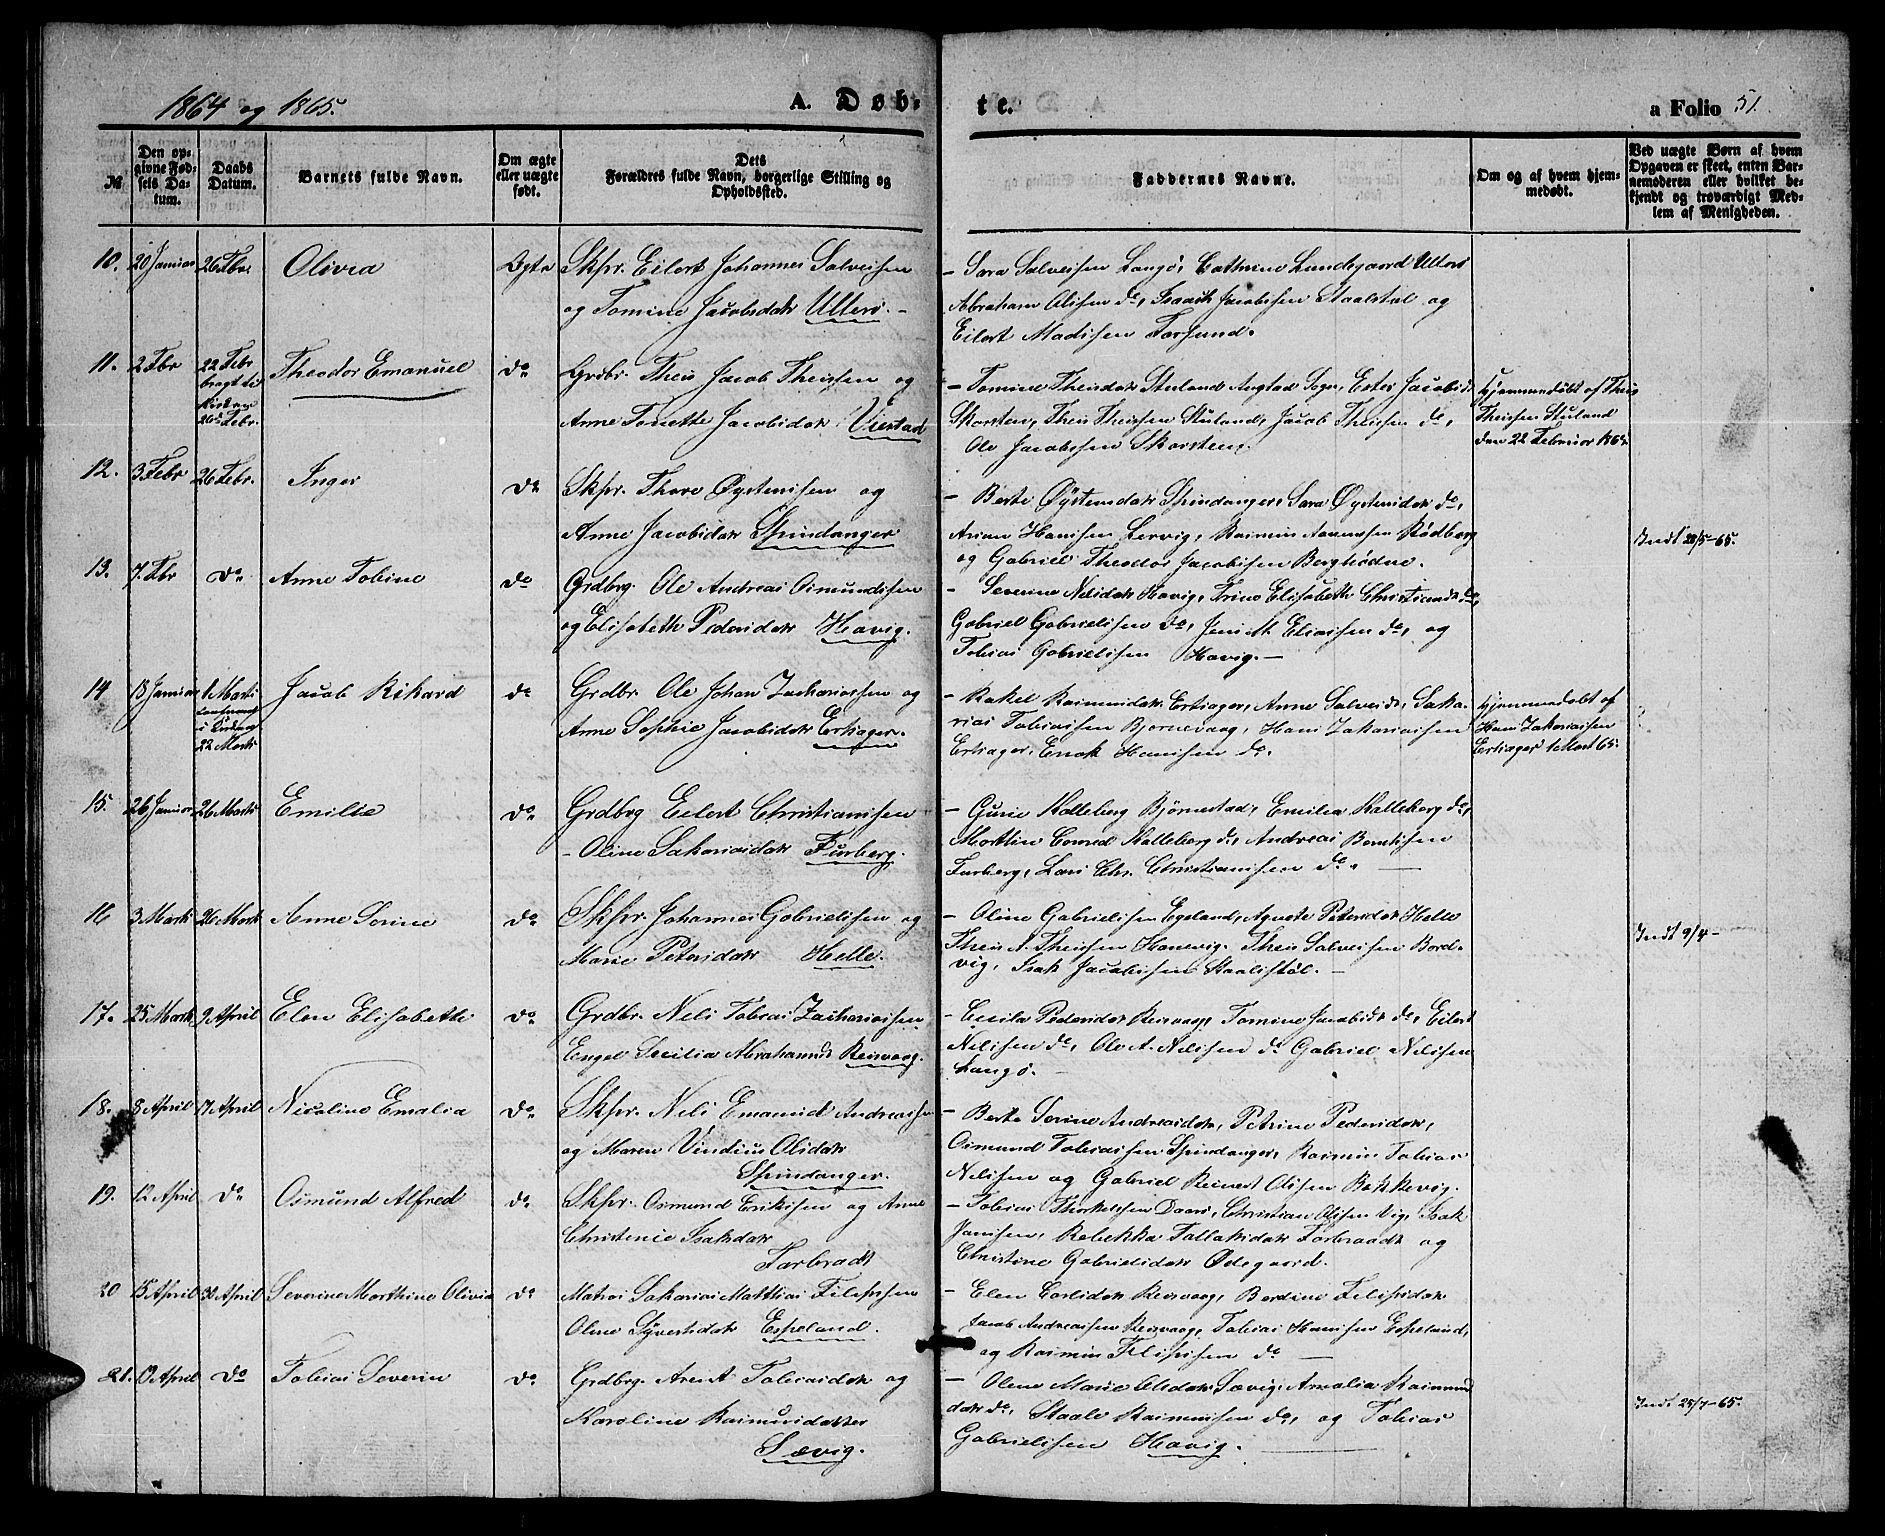 1864 og 1865.
A. Døb-
te.
a Folio 51.
№
Den op-
givne Fød-
sels Da-
tum.
Daabs
Datum.
Barnets fulde Navn.
Om ægte
eller uægte
født.
Dets
Forældres fulde Navn, borgerlige Stilling og
Opholdssted.
Faddernes Navne.
Om og af hvem hjem-
medøbt.
Ved uægte Børn af hvem
Opgaven er skeet, enten Bar-
nemoderen eller hvilket be-
kjendt og troværdigt Med-
lem af Menigheden.
10. 20 Januar 26 Fbr. Olivia Ægte Skpr. Eilert Johannes Salvesen
og Tomine Jacobsdatr Ullerø. –
– Sara Salvesen Langø, Cathrine Lundegaard Ullerø
Abraham Olsen do, Isaack Jacobsen Staalstøl og
Eilert Madssen Farsund.
11. 2 Fbr 22 Febr Theodor Emanuel do Grdbr. Theis Jacob Theissen og
bragt til
Kirken
26de Febr.
Anne Tonette Jacobsdatr Vierstad
– Tomine Theisdatr Stuland Augland Sogn, Ester Jacobsdr
Skarsten, Theis Theissen Stuland, Jacob Theissen do,
Ole Jacobsen Skarsten
Hjemmedøbt af Theis
Theissen Stuland
den 22 Februar 1865.
12. 3 Febr 26 Febr. Inger do Skpr. Thore Øystensen og
Anne Jacobsdatr Spindanger
– Berte Øystensdatr Spindanger, Sara Øystensdatr do,
Arian Hansen Lervig, Rasmus Aanensen Rødberg
og Gabriel Theodor Jacobsen Berghødne.
Indt 28/5-65.
13. 7. Fbr do Anne Tobine do Grdbrg Ole Andreas Osmundsen
og Elisabeth Pedersdatr Havig.
– Severine Nilsdatr Havig, Trine Elisabeth Christiansdr do,
Gabriel Gabrielsen do, Jens M. Eliassen do, og
Tobias Gabrielsen Havig. –
14 13 Januar 1 Marts Jacob Rikard do Grdbr Ole Johan Zachariassen og
i Kirken
22 Marts
Anne Sophie Jacobsdatr Ertzager.
– Rakel Rasmusdatr Ertzager, Anne Salvesdr, Saka-
rias Tobiassen Bjørnevaag, Hans Zakariassen
Ertzager, Enok Hansen do.
Hjemmedøbt af
Hans Zakariassen
Ertzager 1 Mart 65.
15. 26 Januar 26 Marts Emilie do Grdbrg Eilert Christiansen
– Oline Sakariasdatr Furberg.
– Gurie Kalleberg Bjørnestad, Emilia Kalleberg do,
Morthin Conrad Kalleberg do, Andreas Berntsen
Furberg, Lars Chr. Christiansen do. –
16 3 Marts 26 Marts Anne Sorine do Skpr. Johannes Gabrielsen og
Marie Petersdatr Helle.
– Oline Gabrielsen Egeland, Agnete Petersdatr Helle
Theis N. Theissen Hanevig, Theis Salvesen Bord-
vig, Isak Jacobsen Staalstøl. –
Indt 9/4 –
17. 25 Marts 9 April Elen Elisabette do Grdbr. Nels Tobias Zachariassen
Engel Secilia Abrahamsdr Reisvaag.
– Cecilia Pedersdatr Reisvaag, Tomine Jacobsdr do, Eilert
Nilssen do, Ole A. Nilssen do Gabriel Nilssen
Langø. –
18. 8 April 17 April Nicoline Emalia do Skpr. Nels Emanuel Andreassen
og Maren Vendius Olsdatr
Spindanger.
– Berte Serine Andreasdatr, Petrine Pedersdatr,
Osmund Tobiassen Spindanger, Rasmus Tobias
Nilssen og Gabriel Reinert Olssen Bakkevig.
19. 12 April do Osmund Alfred do Skpr. Osmund Eriksen og Anne
Christenie Isaksdatr
Farbrødt
– Tobias Thorkelssen Daarø, Christian Olssen Vig, Isak
Janssen, Rebekka Tallaksdatr Farbraadt og
Christine Gabrielsdatr Ødegaard.
20 15 April 30 April Severine Morthine Olivia do Matros Sakarias Mathias Filipsen
Oline Syvertsdatr Espeland.
– Elen Carlsdatr Reisvaag, Berdine Filipsdatr
Jacob Andreassen Reisvaag, Tobias Hanssen Espeland,
og Rasmus Filipsen do –
21. April do Tobias Severin do Grdbrg. Aren A Tobiasdatr og
Karoline Rasmusdatter
Sævig.
– Olene Marie Olsdatr Sævig, Amalia Rasmus
datr do, Staale Rasmussen do, og Tobias
Gabrielssen Havig. –
Indt 25/7-65.